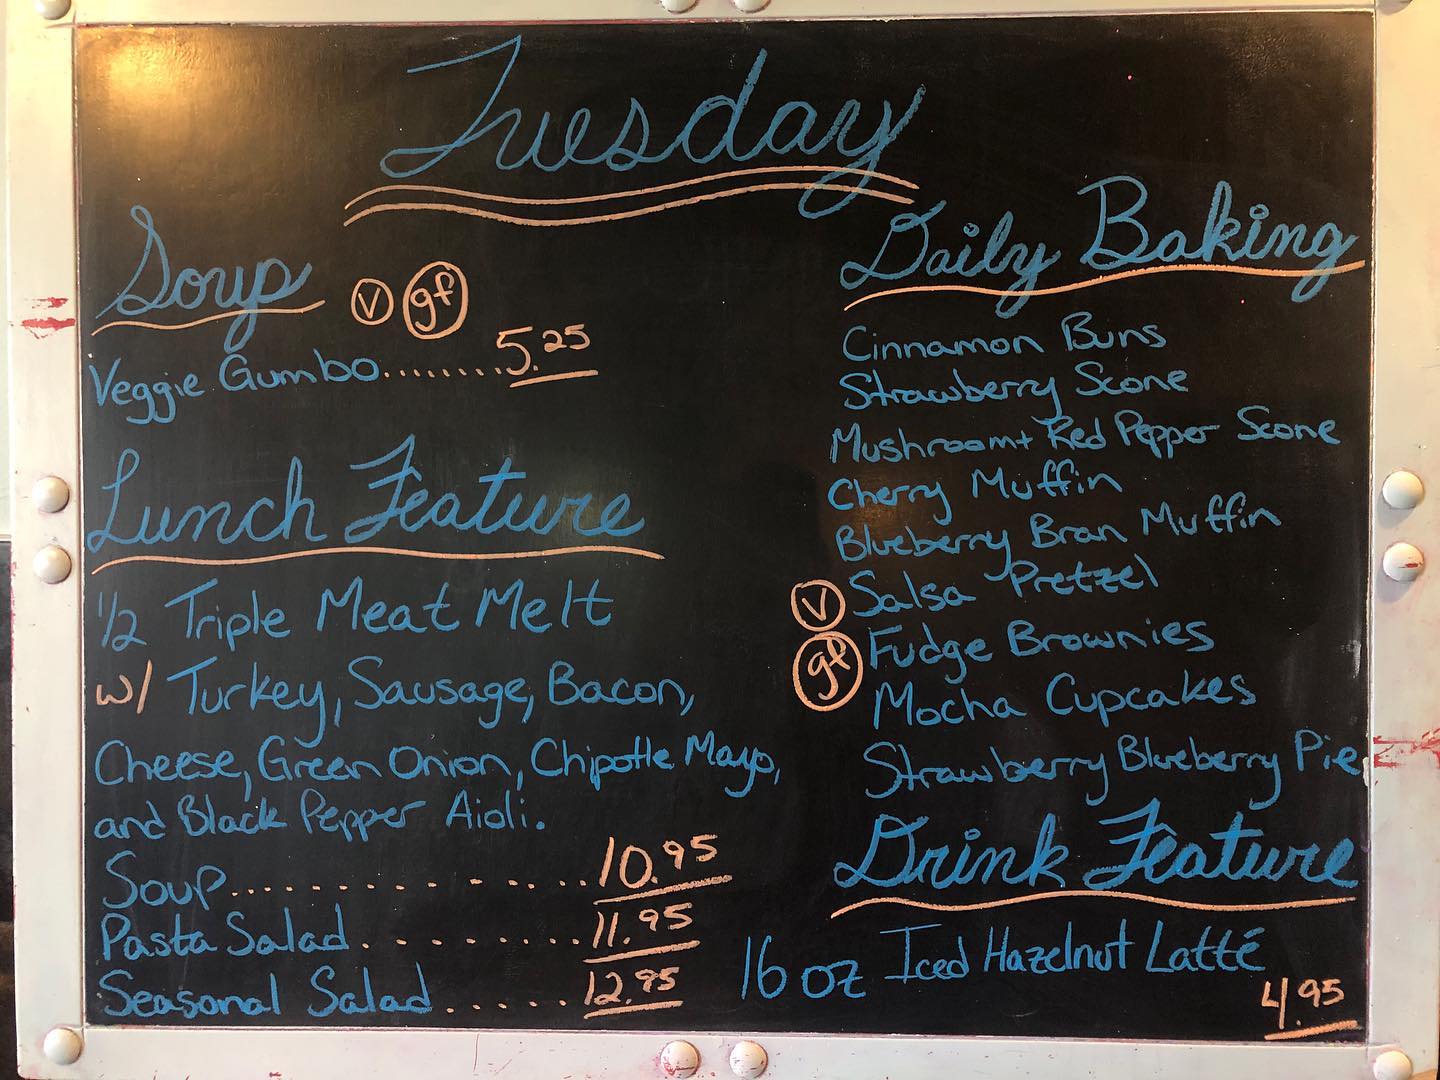 Tuesday
Soup V gf
Veggie Gumbo........5.25
Lunch Feature
1/2 Triple Meat Melt
w/ Turkey, Sausage, Bacon,
Cheese, Green Onion, Chipotle Mayo,
and Black Pepper Aioli.
Soup................10.95
Pasta Salad.........11.95
Seasonal Salad......12.95
Daily Baking
Cinnamon Buns
Strawberry Scone
Mushroom + Red Pepper Scone
Cherry Muffin
Blueberry Bran Muffin
V Salsa Pretzel
gf Fudge Brownies
Mocha Cupcakes
Strawberry Blueberry Pie
Drink Feature
16 oz Iced Hazelnut Latté
4.95